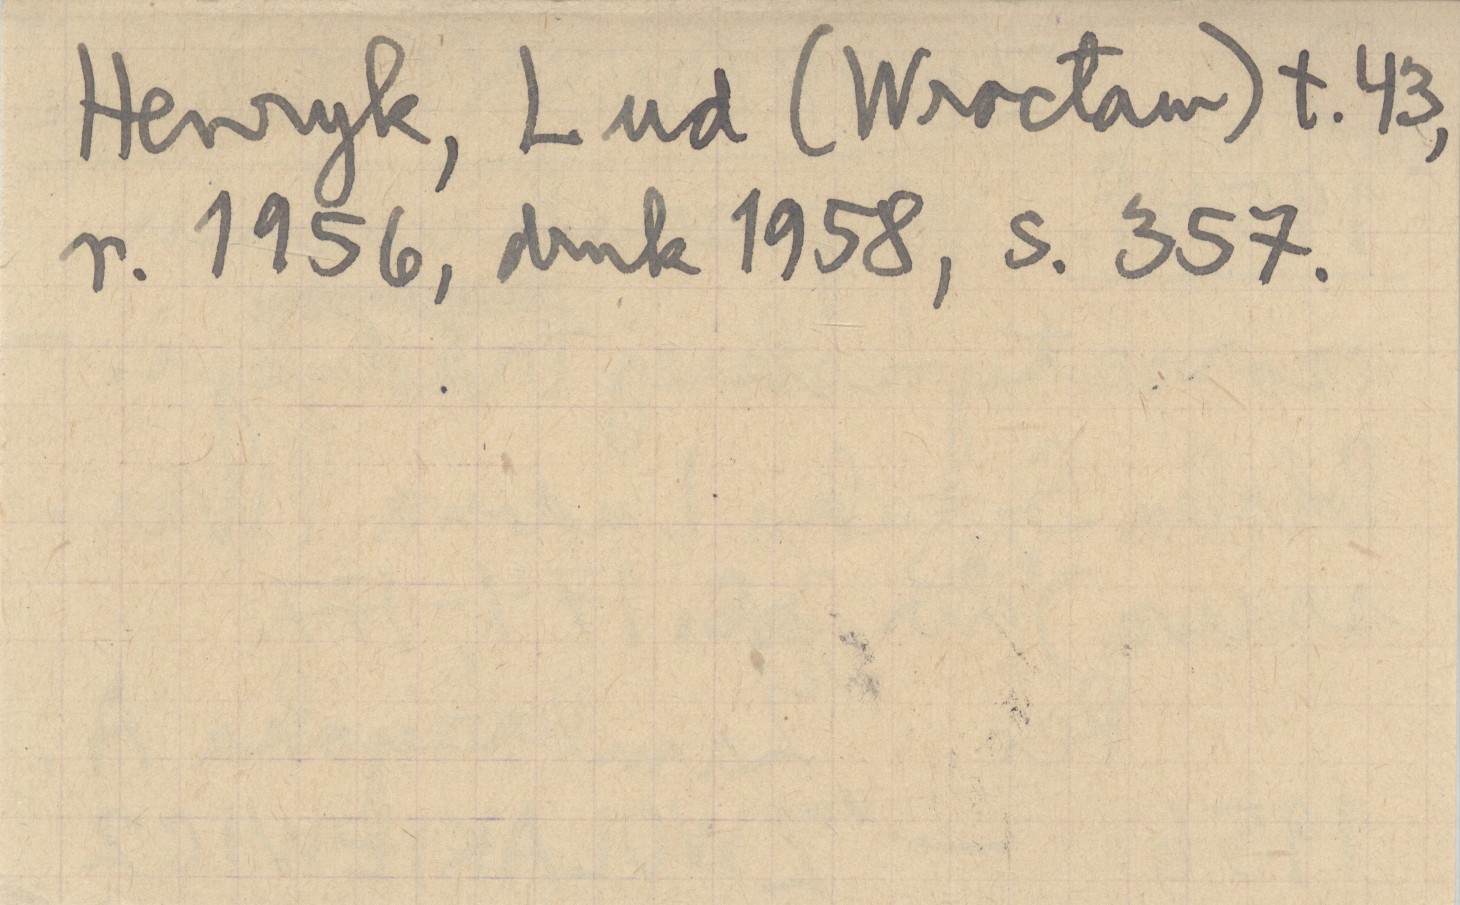 Henryk, Lud (Wrocław) t. 43,
r. 1956, druk 1958, s. 357.